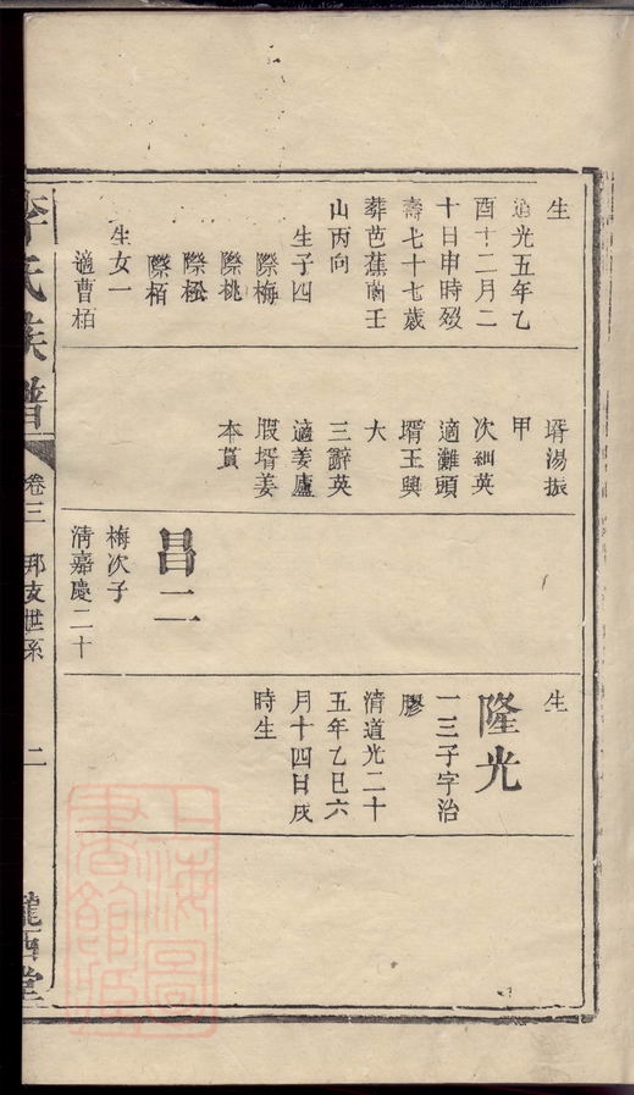 生
道光五年乙
酉十二月二
十日申時歿
壽七十七歲
葬芭蕉崗壬
山丙向
生子四
際梅
際桃
際松
際栢
生女一
適曹栢
壻湯振
甲
次紃英
適灘頭
壻王興
大
三辭英
適姜廬
塅壻姜
本貰
昌二
梅次子
清嘉慶二十
生
隆光
一三子字治
膠
清道光二十
五年乙巳六
月十四日戌
時生
李氏族譜
卷三 邦支世系
二
隴西堂
上海圖
書館藏